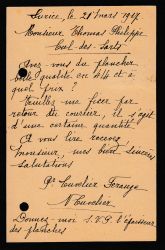 Surice, le 21 mars 1917
Monsieur Thomas Philippe
Cul-des-Sarts
Avez vous du plancher
belle qualité en 4/4 et à
quel prix ?
Veuillez me fixer par
retour du courrier, il s'agit
d'une certaine quantité
A vous lire recevez
Monsieur, mes bien sincères
salutations
Cuvelier Ferauge
N Cuvelier
Donnez-moi S.V.P. l'épaisseur
des planches